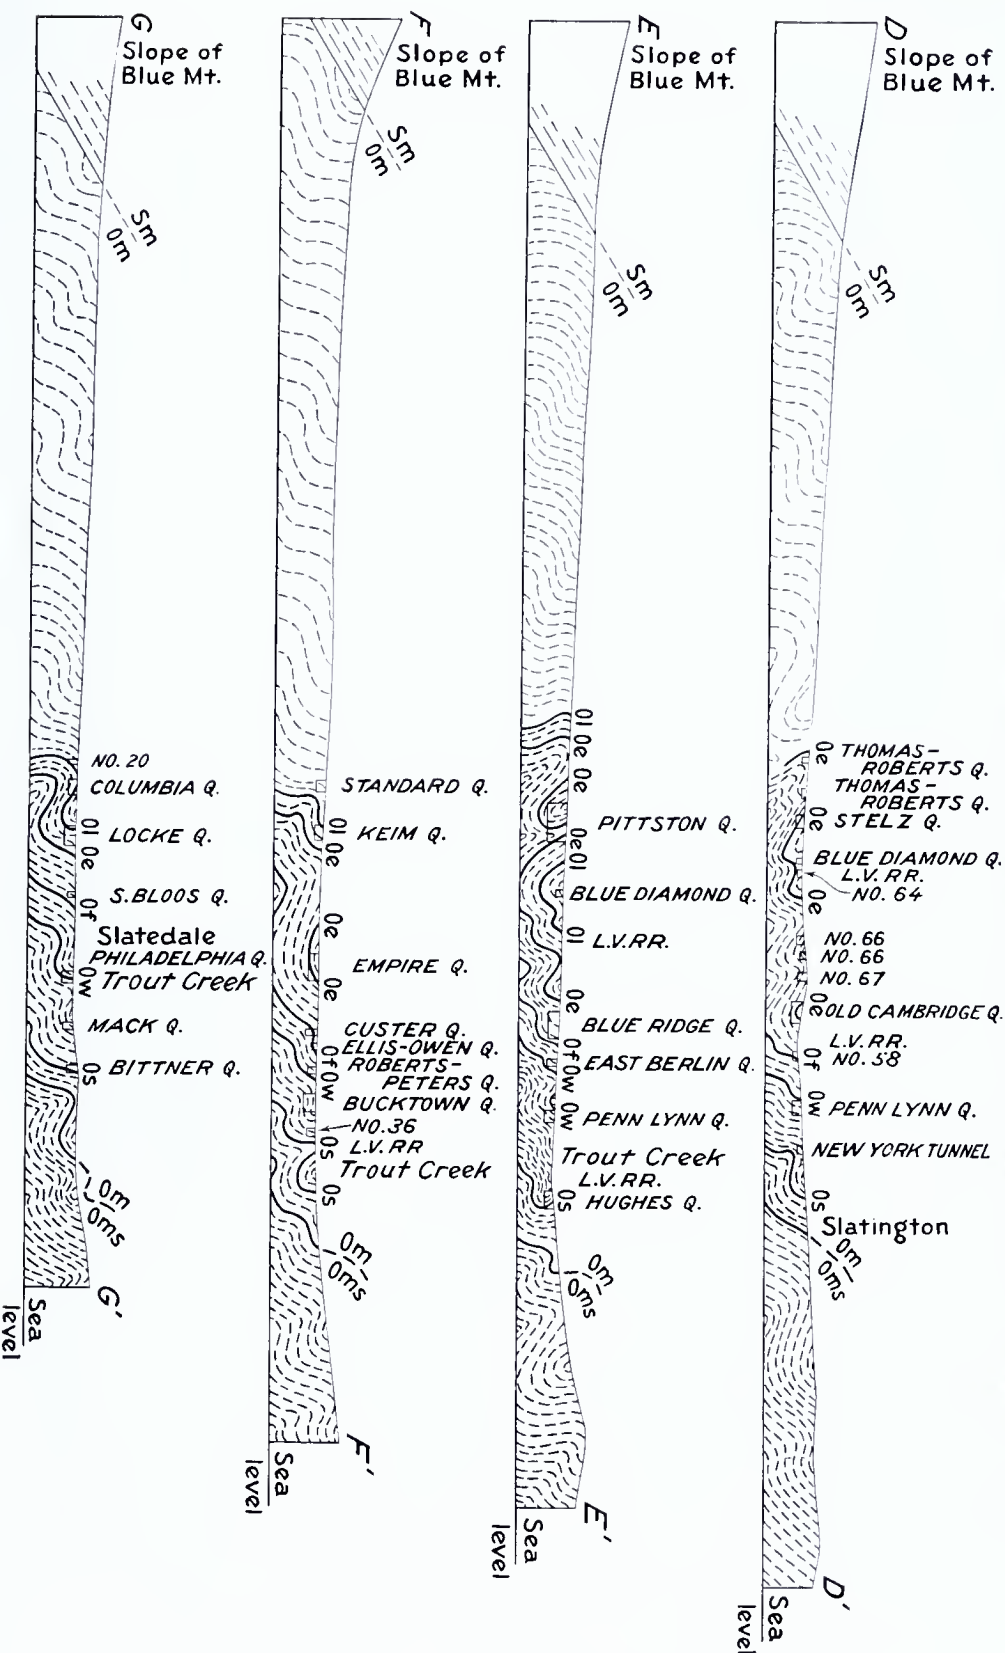 G
Slope of
Blue Mt.
Sm
Om
NO. 20
COLUMBIA Q.
Ol
LOCKE Q.
Oe
S. BLOOS Q.
Of
Slatedale
PHILADELPHIA Q.
Ow
Trout Creek
MACK Q.
Os
BITTNER Q.
Om
Oms
G'
Sea
level
F
Slope of
Blue Mt.
Sm
Om
STANDARD Q.
Ol
KEIM Q.
Oe
Oe
EMPIRE Q.
Oe
CUSTER Q.
ELLIS-OWEN Q.
Of
ROBERTS-
PETERS Q.
Ow
BUCKTOWN Q.
NO. 36
L.V. RR
Os
Trout Creek
Os
Om
Oms
F'
Sea
level
E
Slope of
Blue Mt.
Sm
Om
Ol
Oe
Oe
PITTSTON Q.
Oe
Ol
BLUE DIAMOND Q.
Ol
L.V.RR.
Oe
BLUE RIDGE Q.
Of
EAST BERLIN Q.
Ow
Ow
PENN LYNN Q.
Trout Creek
L.V. RR.
Os
HUGHES Q.
Om
Oms
E'
Sea
level
D
Slope of
Blue Mt.
Sm
Om
Oe
THOMAS-
ROBERTS Q.
THOMAS-
ROBERTS Q.
Oe
STELZ Q.
BLUE DIAMOND Q.
L.V. RR.
NO. 64
Oe
NO. 66
NO. 66
NO. 67
Oe
OLD CAMBRIDGE Q.
L.V. RR.
Of
NO. 58
Ow
PENN LYNN Q.
NEW YORK TUNNEL
Os
Slatington
Om
Oms
D'
Sea
level